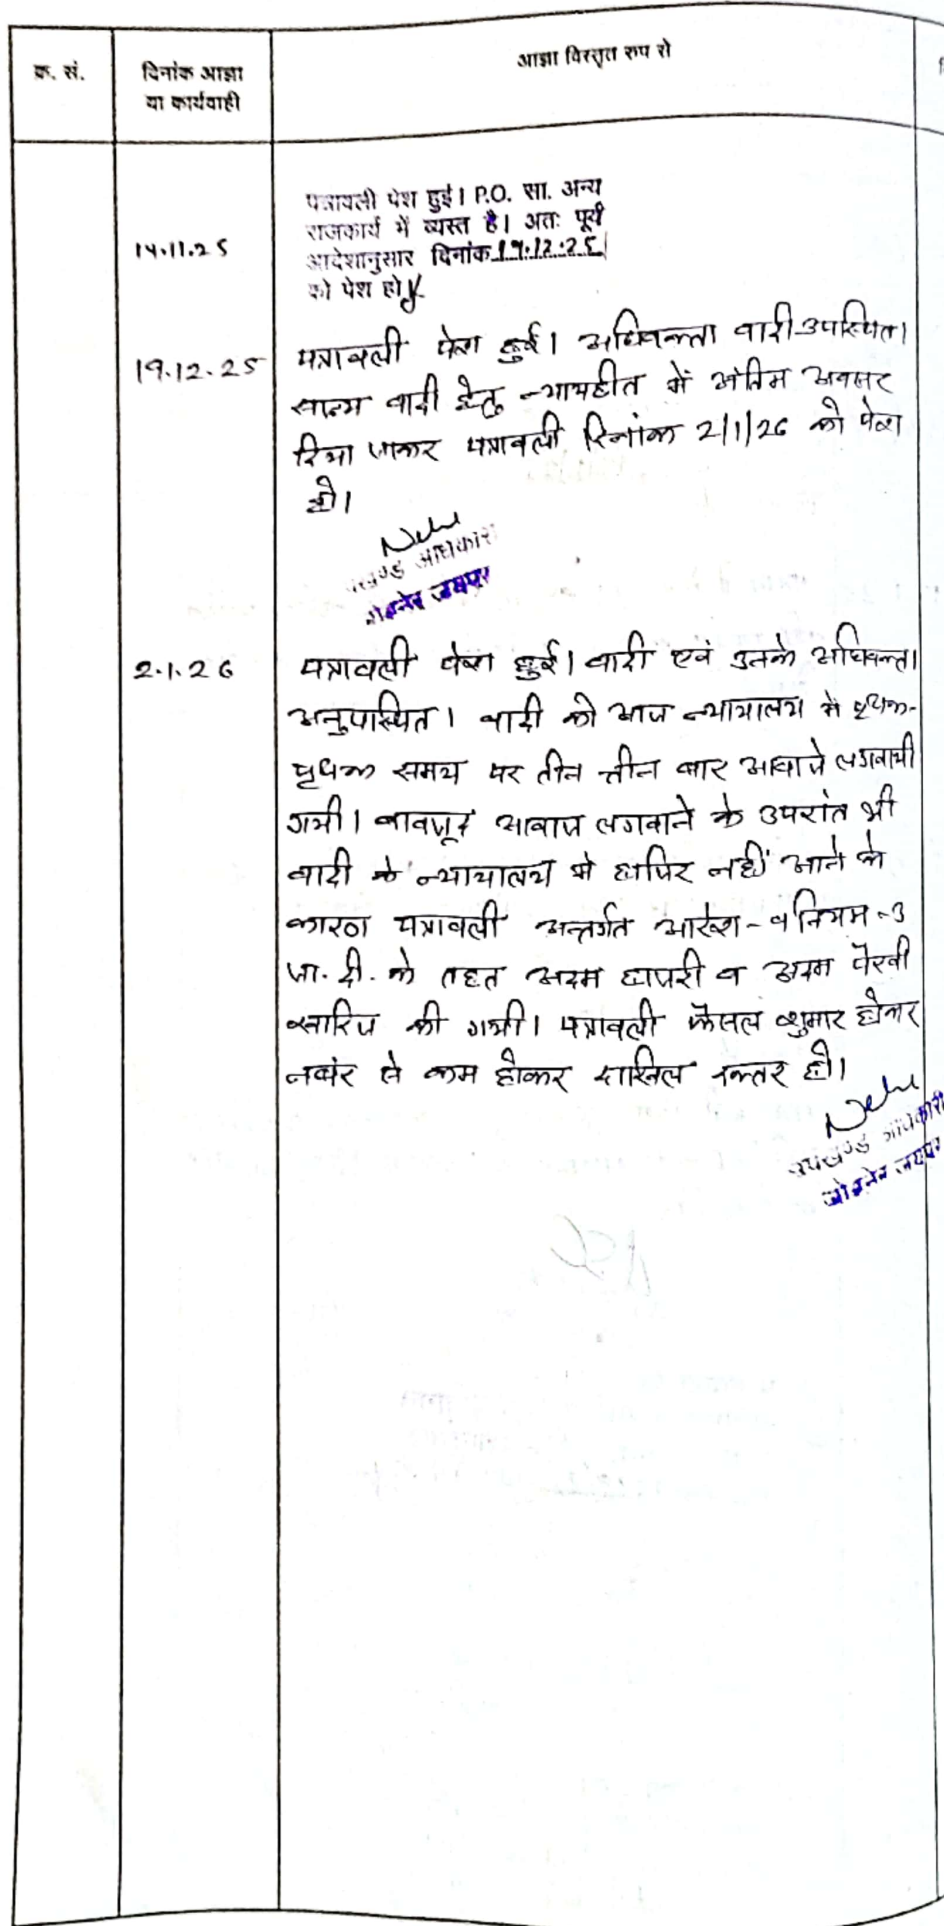 क्र. सं.
दिनांक आज्ञा
या कार्यवाही
आज्ञा विस्तृत रुप से
14.11.25
पत्रावली पेश हुई। P.O. सा. अन्य
राजकार्य में व्यस्त है। अतः पूर्व
आदेशानुसार दिनांक 19.12.25
को पेश हो
19.12.25
पत्रावली पेश हुई। अधिवक्ता वादी उपस्थित।
साक्ष्य वादी हेतु न्यायहीत में अंतिम अवसर
दिया जाकर पत्रावली दिनांक 2/1/26 को पेश
हो।
उपखण्ड अधिकारी
जोबनेर जयपुर
2.1.26
पत्रावली पेश हुई। वादी एवं उनके अधिवक्ता
अनुपस्थित। वादी को आज न्यायालय में पृथक-
पृथक समय पर तीन तीन बार आवाजे लगवायी
गयी। बावजूद आवाज लगवाने के उपरांत भी
वादी के न्यायालय में हाजिर नहीं आने के
कारण पत्रावली अन्तर्गत आदेश-9 नियम-3
जा. दी. के तहत अदम हाजरी व अदम पैरवी
खारिज की गयी। पत्रावली फैसल शुमार होकर
नबंर से कम होकर दाखिल दफ्तर हो।
उपखण्ड अधिकारी
जोबनेर जयपुर